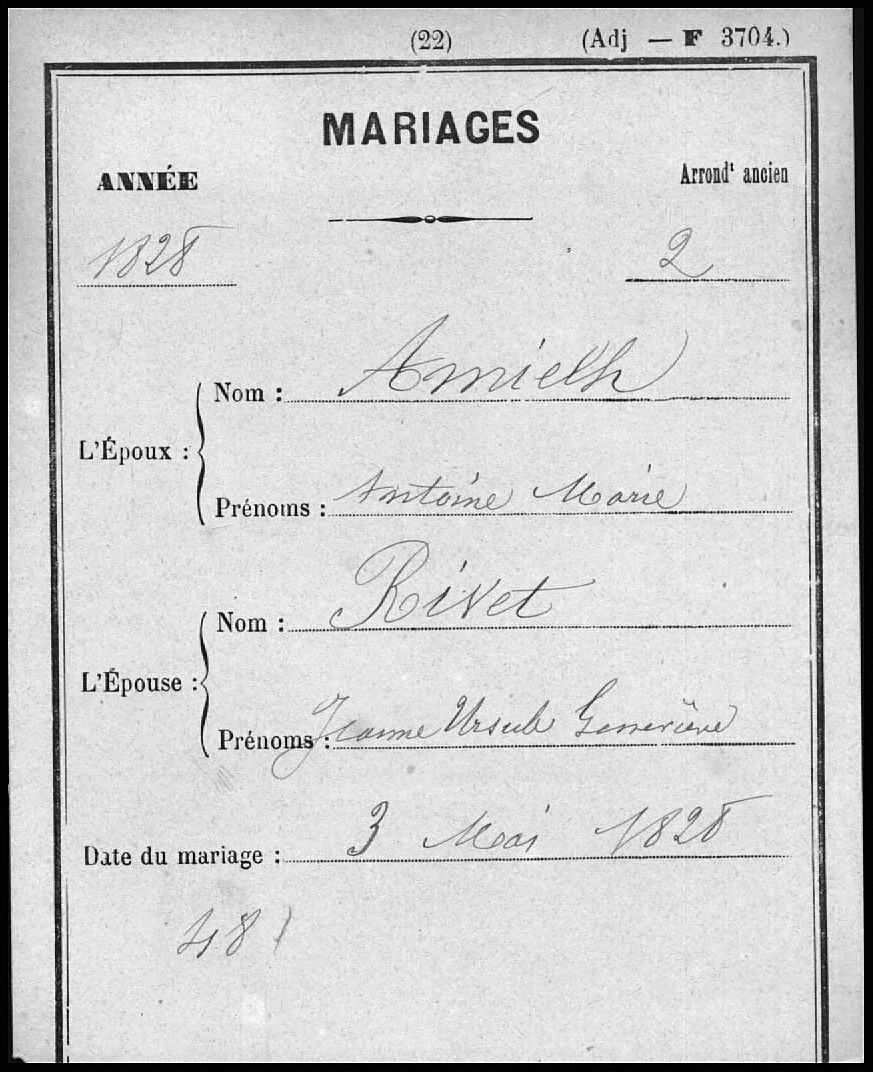 (22) (Adj — F 3704.)
MARIAGES
ANNÉE Arrondt ancien
1828 2
Nom : Amielh
L'Époux :
Prénoms : Antoine Marie
Nom : Rivet
L'Épouse :
Prénoms : Jeanne Ursule Geneviève
Date du mariage : 3 Mai 1828
48